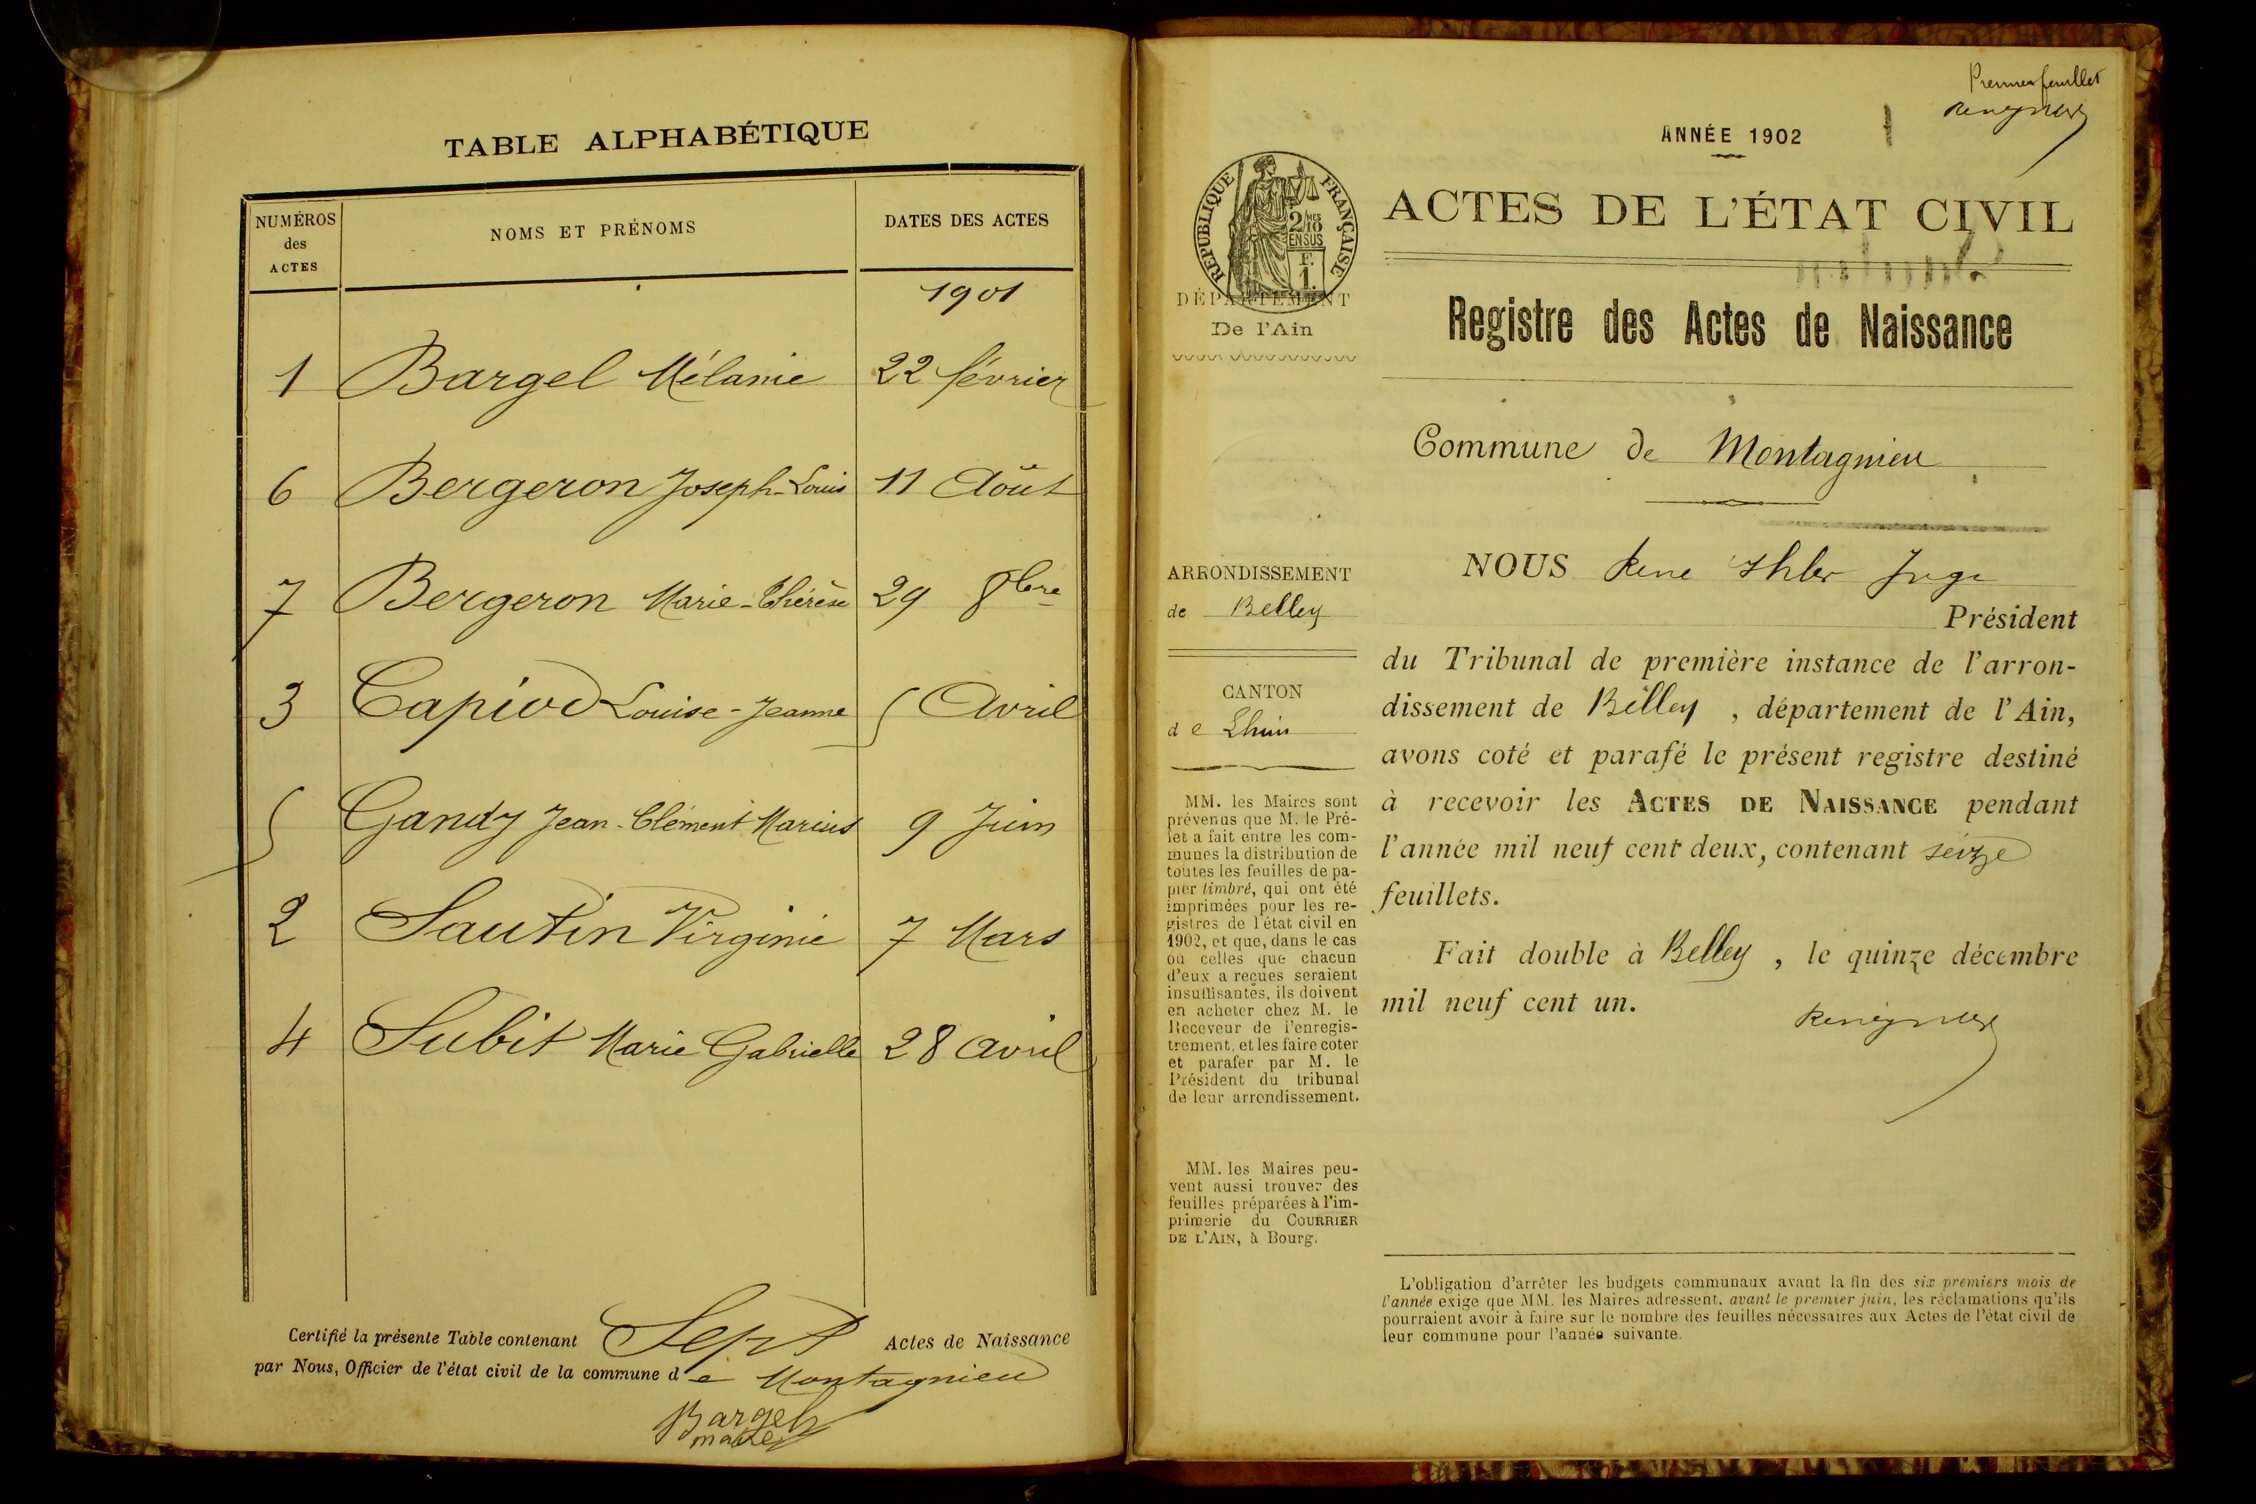 TABLE ALPHABÉTIQUE
NUMÉROS des ACTES
NOMS ET PRÉNOMS
DATES DES ACTES
1901
1 Bargel Mélanie 22 février
6 Bergeron Joseph-Louis 11 Août
7 Bergeron Marie-Thérèse 29 8bre
3 Capiod Louise-Jeanne 5 Avril
5 Gandy Jean-Clément Marius 9 Juin
2 Sautin Virginie 7 Mars
4 Subit Marie Gabrielle 28 avril
Certifié la présente Table contenant Sept Actes de Naissance
par Nous, Officier de l'état civil de la commune de Montagnieu
Bargel
maire
Premier feuillet
ANNÉE 1902
1
RÉPUBLIQUE FRANÇAISE
2/10 MES
EN SUS
F.
1.
ACTES DE L'ÉTAT CIVIL
DÉPARTEMENT
De l'Ain
Registre des Actes de Naissance
Commune de Montagnieu
ARRONDISSEMENT
de Belley
CANTON
de Lhuis
MM. les Maires sont
prévenus que M. le Pré-
fet a fait entre les com-
munes la distribution de
toutes les feuilles de pa-
pier timbré, qui ont été
imprimées pour les re-
gistres de l'état civil en
1902, et que, dans le cas
où celles que chacun
d'eux a reçues seraient
insuffisantes, ils doivent
en acheter chez M. le
Receveur de l'enregis-
trement, et les faire coter
et parafer par M. le
Président du tribunal
de leur arrondissement.
MM. les Maires peu-
vent aussi trouver des
feuilles préparées à l'im-
primerie du COURRIER
DE L'AIN, à Bourg.
NOUS René Ihler Juge
Président
du Tribunal de première instance de l'arron-
dissement de Belley, département de l'Ain,
avons coté et parafé le présent registre destiné
à recevoir les ACTES DE NAISSANCE pendant
l'année mil neuf cent deux, contenant seize
feuillets.
Fait double à Belley, le quinze décembre
mil neuf cent un.
L'obligation d'arrêter les budgets communaux avant la fin des six premiers mois de
l'année exige que MM. les Maires adressent, avant le premier juin, les réclamations qu'ils
pourraient avoir à faire sur le nombre des feuilles nécessaires aux Actes de l'état civil de
leur commune pour l'année suivante.